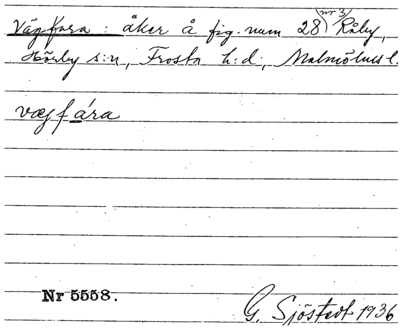 Vägfara : åker å fig. num 28 (nr 3) Råby,
Hörby s:n, Frosta h:d, Malmöhus l.
vægfára
Nr 5558.
G. Sjöstedt 1936